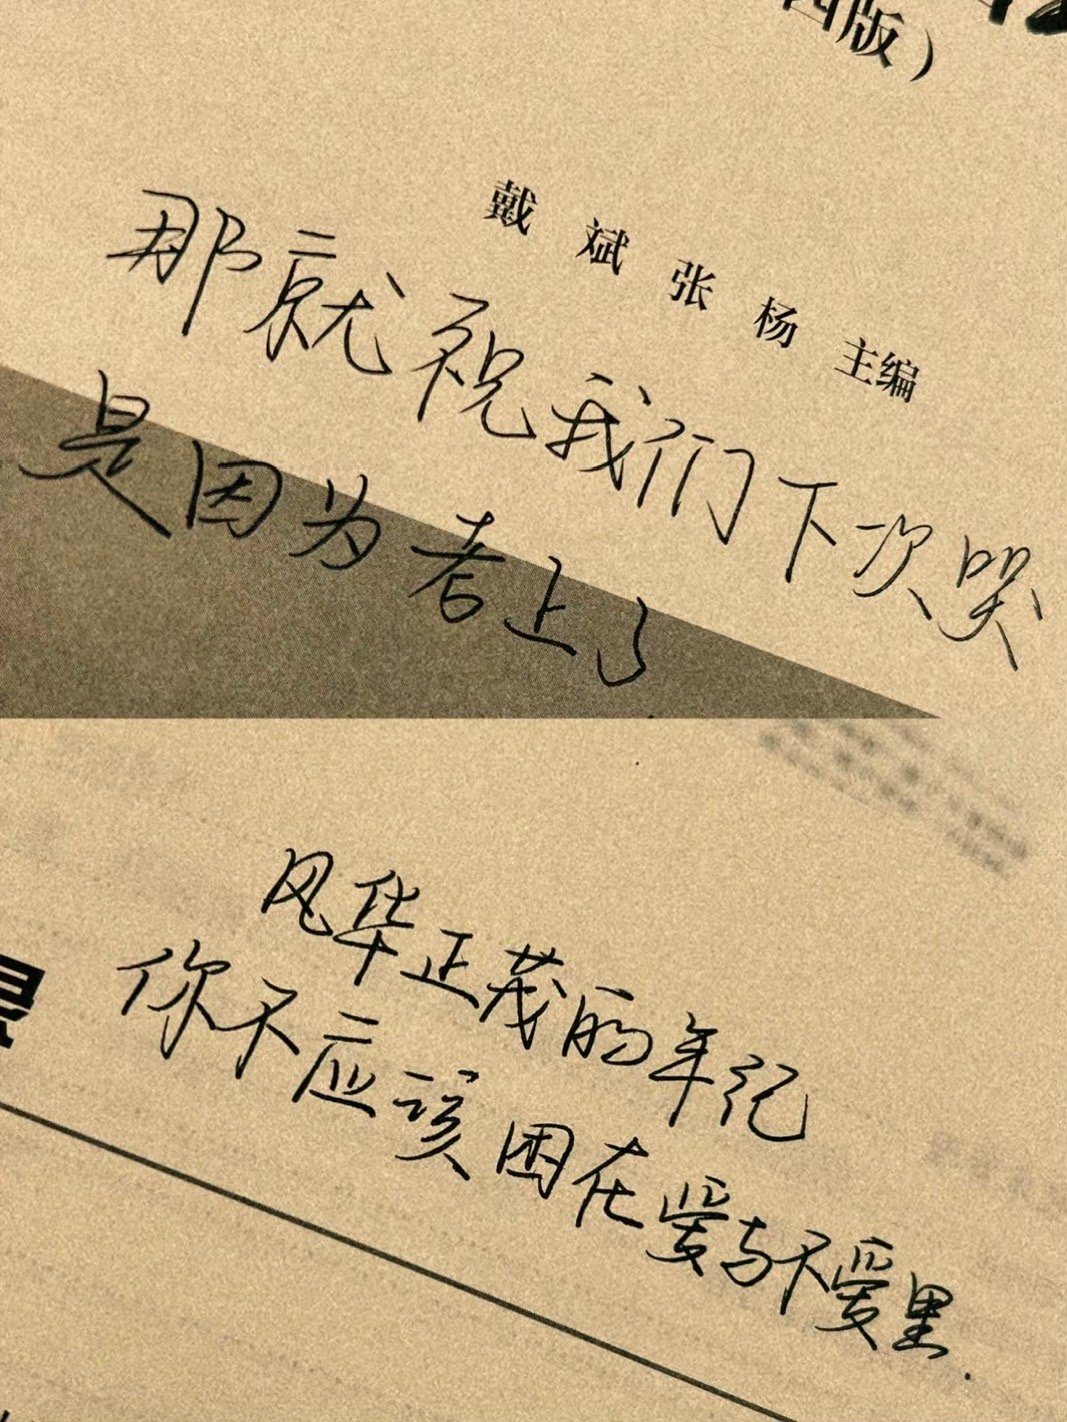 四版）
戴斌 张杨 主编
那就祝我们下次哭
是因为考上了
风华正茂的年纪
你不应该困在爱与不爱里.